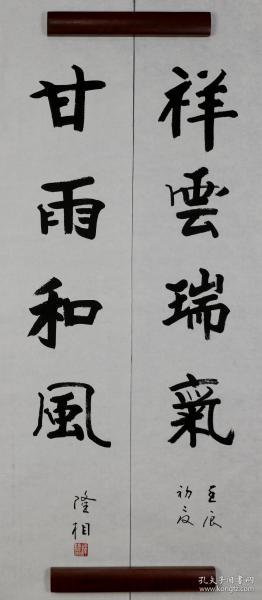 祥雲瑞氣
壬辰
初夏
甘雨和風
隆相
孔夫子旧书网